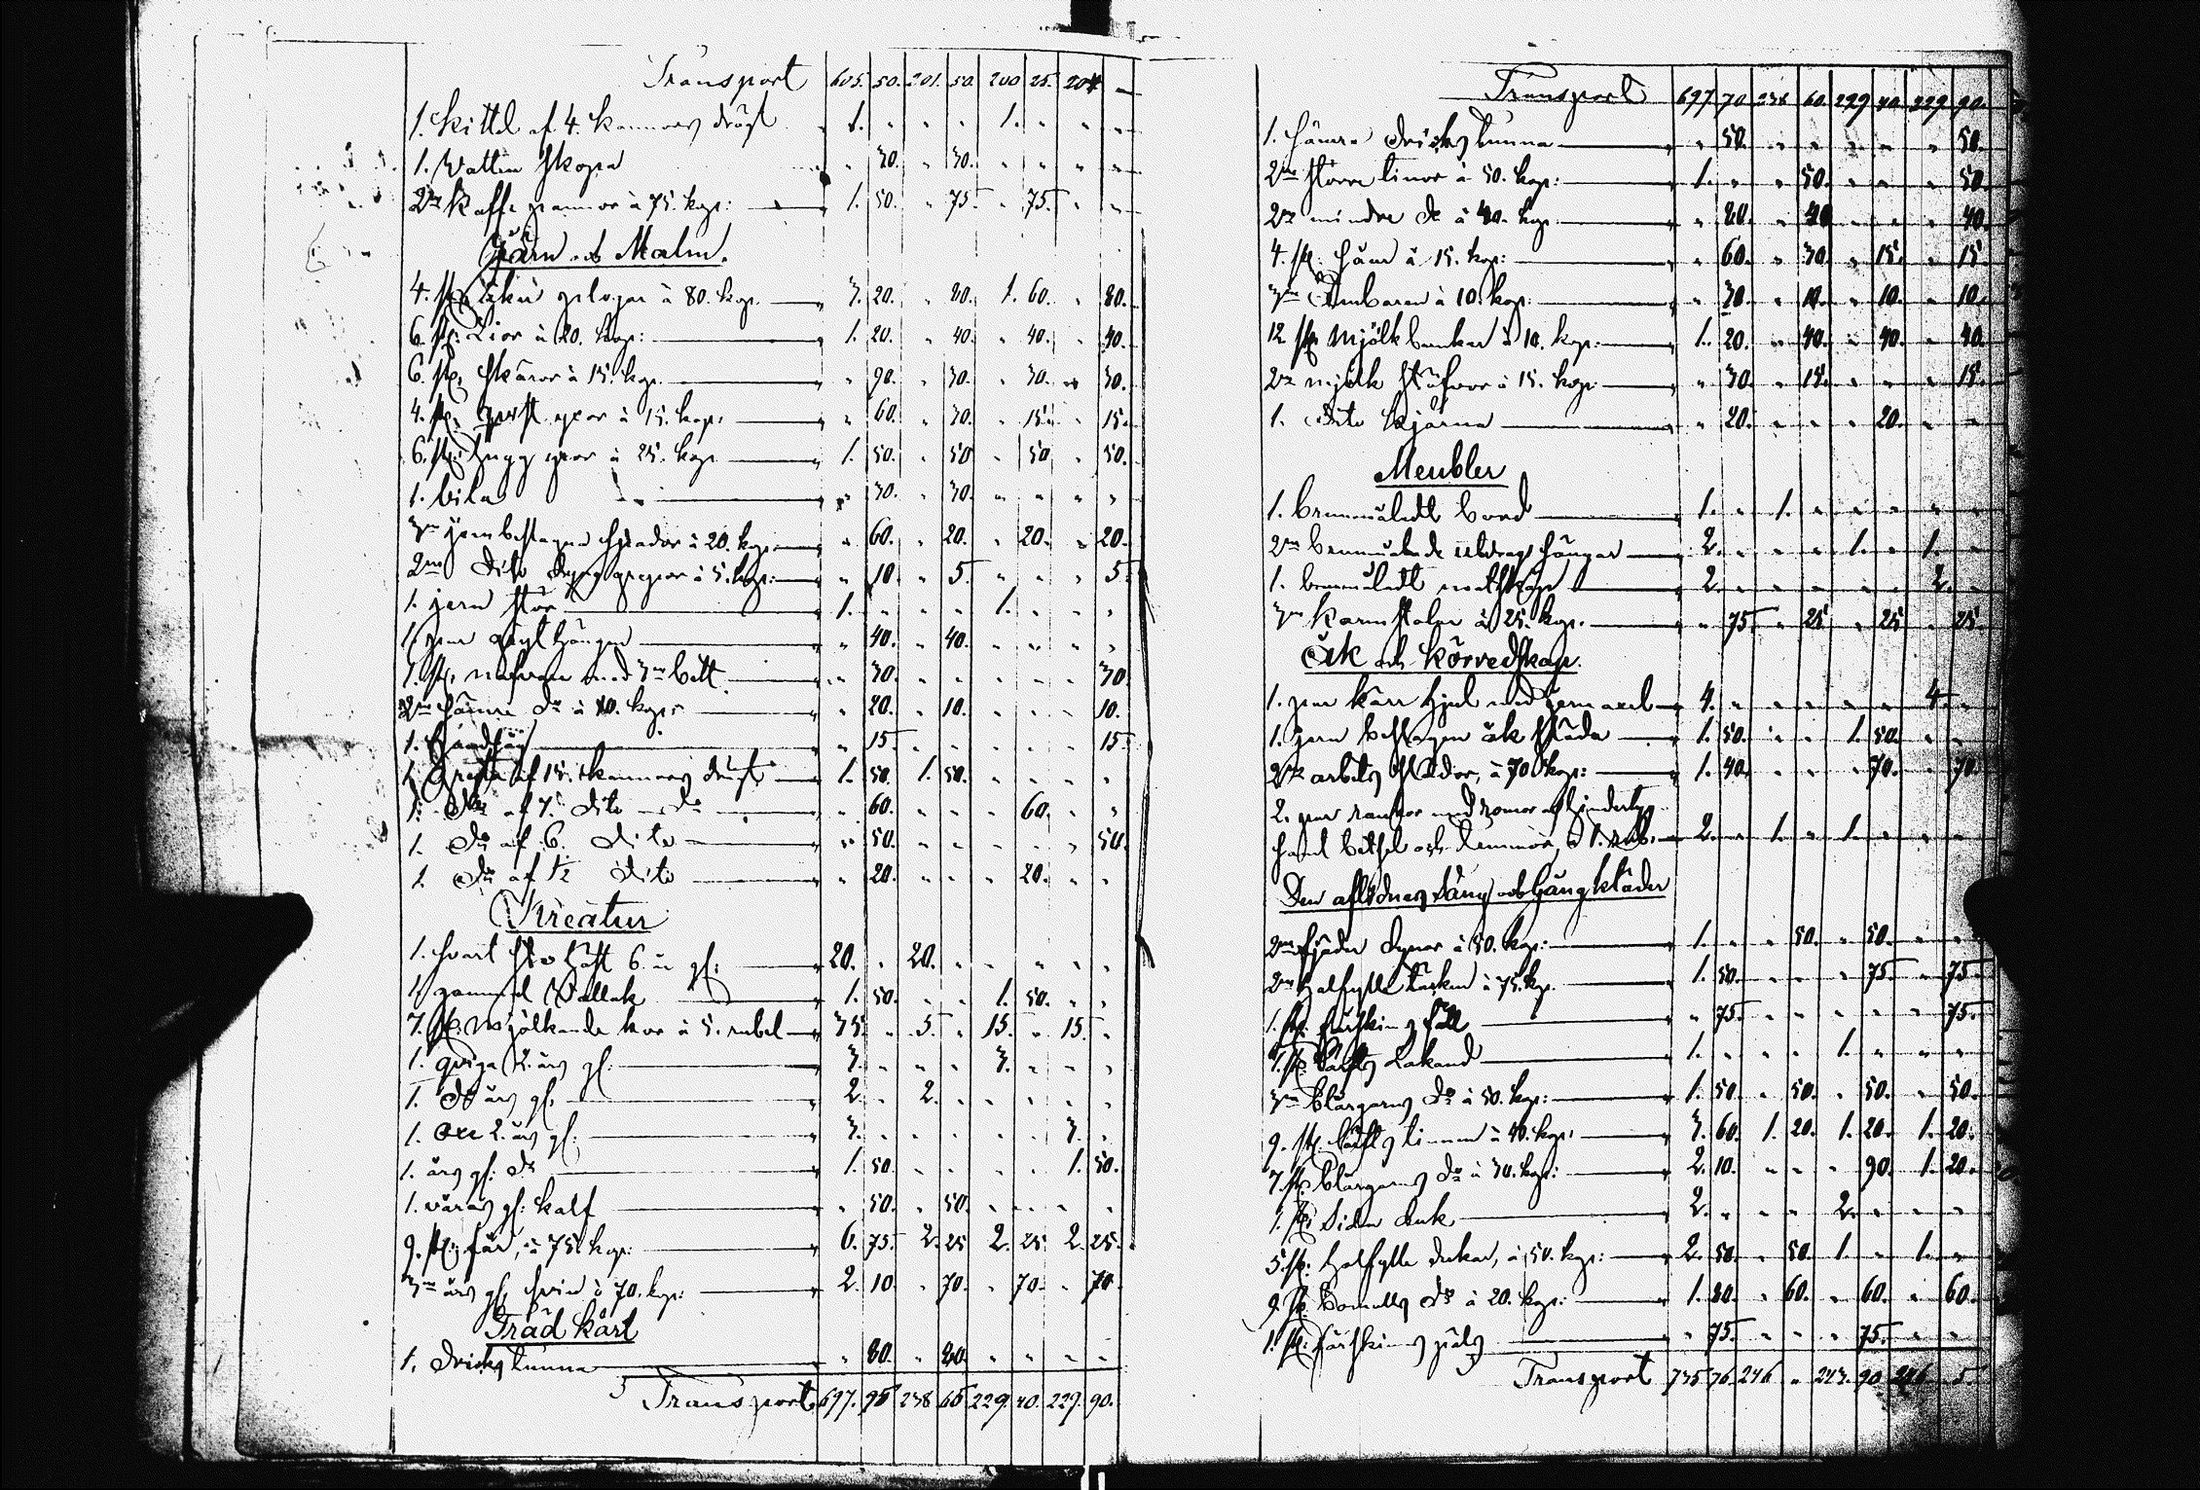 Transport 605. 50. 201. 50. 200 25. 204 —
1. kittel af 4. kannors drägt 1. " " " 1. " " "
1. Vatten skopa " 30. " 30. " " " "
2ne kaffe pannor à 75. kop: 1. 50. " 75 " 75. " "
Järn och Malm.
4. st: à 80. kop. 3. 20. " 80. 1. 60. " 80.
6. st: Lior à 20. kop: 1. 20. " 40. " 40. " 40.
6. st: skäror à 15. kop. " 90. " 30. " 30. " 30.
4. st: yxor à 15. kop: " 60. " 30. " 15. " 15.
6. st: hugg yxor à 25. kop 1. 50. " 50 " 50 " 50.
1. bila " 30. " 30. " " " "
3ne jernbeslagna spador à 20. kop: " 60. " 20. " 20. " 20.
2ne Dito grepar à 5. kop: " 10. " 5. " " " 5.
1. jern stör 1. " " " 1. " " "
1. par " 40. " 40. " " " "
1. st: nafvare med 3ne bett " 30. " " " " " 30
2ne sämre do à 10. kop: " 20. " 10. " " " 10.
1. handsåg " 15. " " " " " 15.
1. gryta af 15. kannors drägt 1. 50. 1. 50. " " " "
1. Do af 7. dito do " 60. " " " 60. " "
1. Do af 6. Dito " 50. " " " " " 50.
1. Do af ½ Dito " 20. " " " 20. " "
Kreatur
1. svart sto 6. år gl: 20. " 20. " " " " "
1. gammal Vallak 1. 50. " " 1. 50. " "
7. st: mjölkande kor à 5. rubel 35. " 5. " 15. " 15. "
1. qviga 2. års gl: 3. " " " 3. " " "
1. Do års gl. 2. " 2. " " " " "
1. Oxe 2. års gl: 3. " " " " " 3. "
1. års gl: do 1. 50. " " " " 1. 50.
1. våras gl: kalf " 50. " 50. " " " "
9. st: får, à 75. kop: 6. 75. 2. 25 2. 25 2. 25.
3ne års gl: svin à 70. kop: 2. 10. " 70. " 70. " 70.
Träd kärl
1. dricks tunna " 80. " 80. " " " "
Transport 697. 238 229. 40. 229. 90.
Transport 697 70. 238 60. 229 40. 229. 90.
1. sämre dricks tunna " 50. " " " " " 50.
2ne större tinor à 50. kop: 1. " " 50. " " " 50.
2ne mindre do à 40. kop " 80. " 40 " " " 40.
4. st: såar à 15. kop: " 60. " 30. " 15. " 15.
3ne Embaren à 10. kop: " 30. " 10. " 10. " 10.
12 st: mjölk bunkar à 10. kop: 1. 20. " 40. " 40. " 40.
2ne mjölk stäfvor à 15. kop: " 30. " 15. " " " 15.
1. Dito kjärna " 20. " " " 20. " "
Meubler
1. brunmåladt bord 1. " 1. " " " " "
2ne brunmålade utdrags sängar 2. " " " 1. " 1. "
1. brunmåladt matskåp 2. " " " " " 2. "
3ne Karmstolar à 25. kop. " 75. " 25. " 25 " 25.
Åk och Körredskap.
1. par kärr hjul med jernaxel 4. " " " " " 4 "
1. jern beslagen åk släda 1. 50. " " 1. 50. " "
2ne arbets slädor, à 70 kop: 1. 40. " " " 70. " 70.
2. par rankor med
sand betsel och tömmar, à 1. rub. 2. " 1. " 1. " " "
Den aflidnes säng och gångkläder
2ne fjäder dynor à 50. kop: 1. " " 50. " 50. " "
2ne halfylle täcken à 75. kop. 1. 50. " " " 75. " 75
1. st: fårskins fäll " 75. " " " " " 75.
1. st: Lakand 1. " " " 1. " " "
3ne blårgarns do à 50. kop: 1. 50. " 50. " 50. " 50.
9. st: à 40. kop: 3. 60. 1. 20. 1. 20. 1. 20.
7. st: blårgarns do à 30. kop: 2. 10. " " " 90. 1. 20.
1. st: Siden duk 2. " " " 2. " " "
5. st: halfylle dukar, à 50. kop: 2. 50. " 50. 1. " 1. "
9. st: bomulls do à 20. kop: 1. 80. " 60. " 60. " 60.
1. st: fårskins päls " 75. " " " 75. " "
Transport 735 246 " 243. 90 246 5.